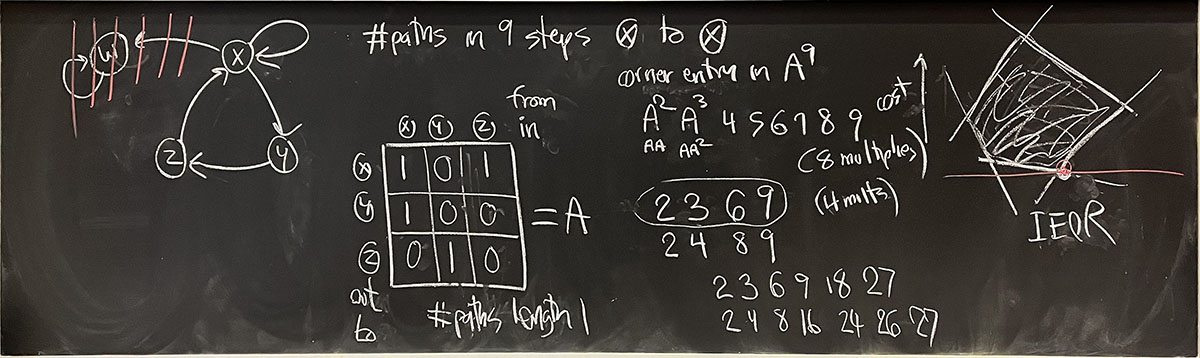 W
X
Z
Y
#paths in 9 steps X to X
corner entry in A⁹
A² A³ 4 5 6 7 8 9
AA AA²
(8 multiplies)
2 3 6 9
(4 mults)
2 4 8 9
2 3 6 9 18 27
2 4 8 16 24 26 27
from
X Y Z in
X 1 0 1
Y 1 0 0 = A
Z 0 1 0
out
to
#paths length 1
cost
IEOR